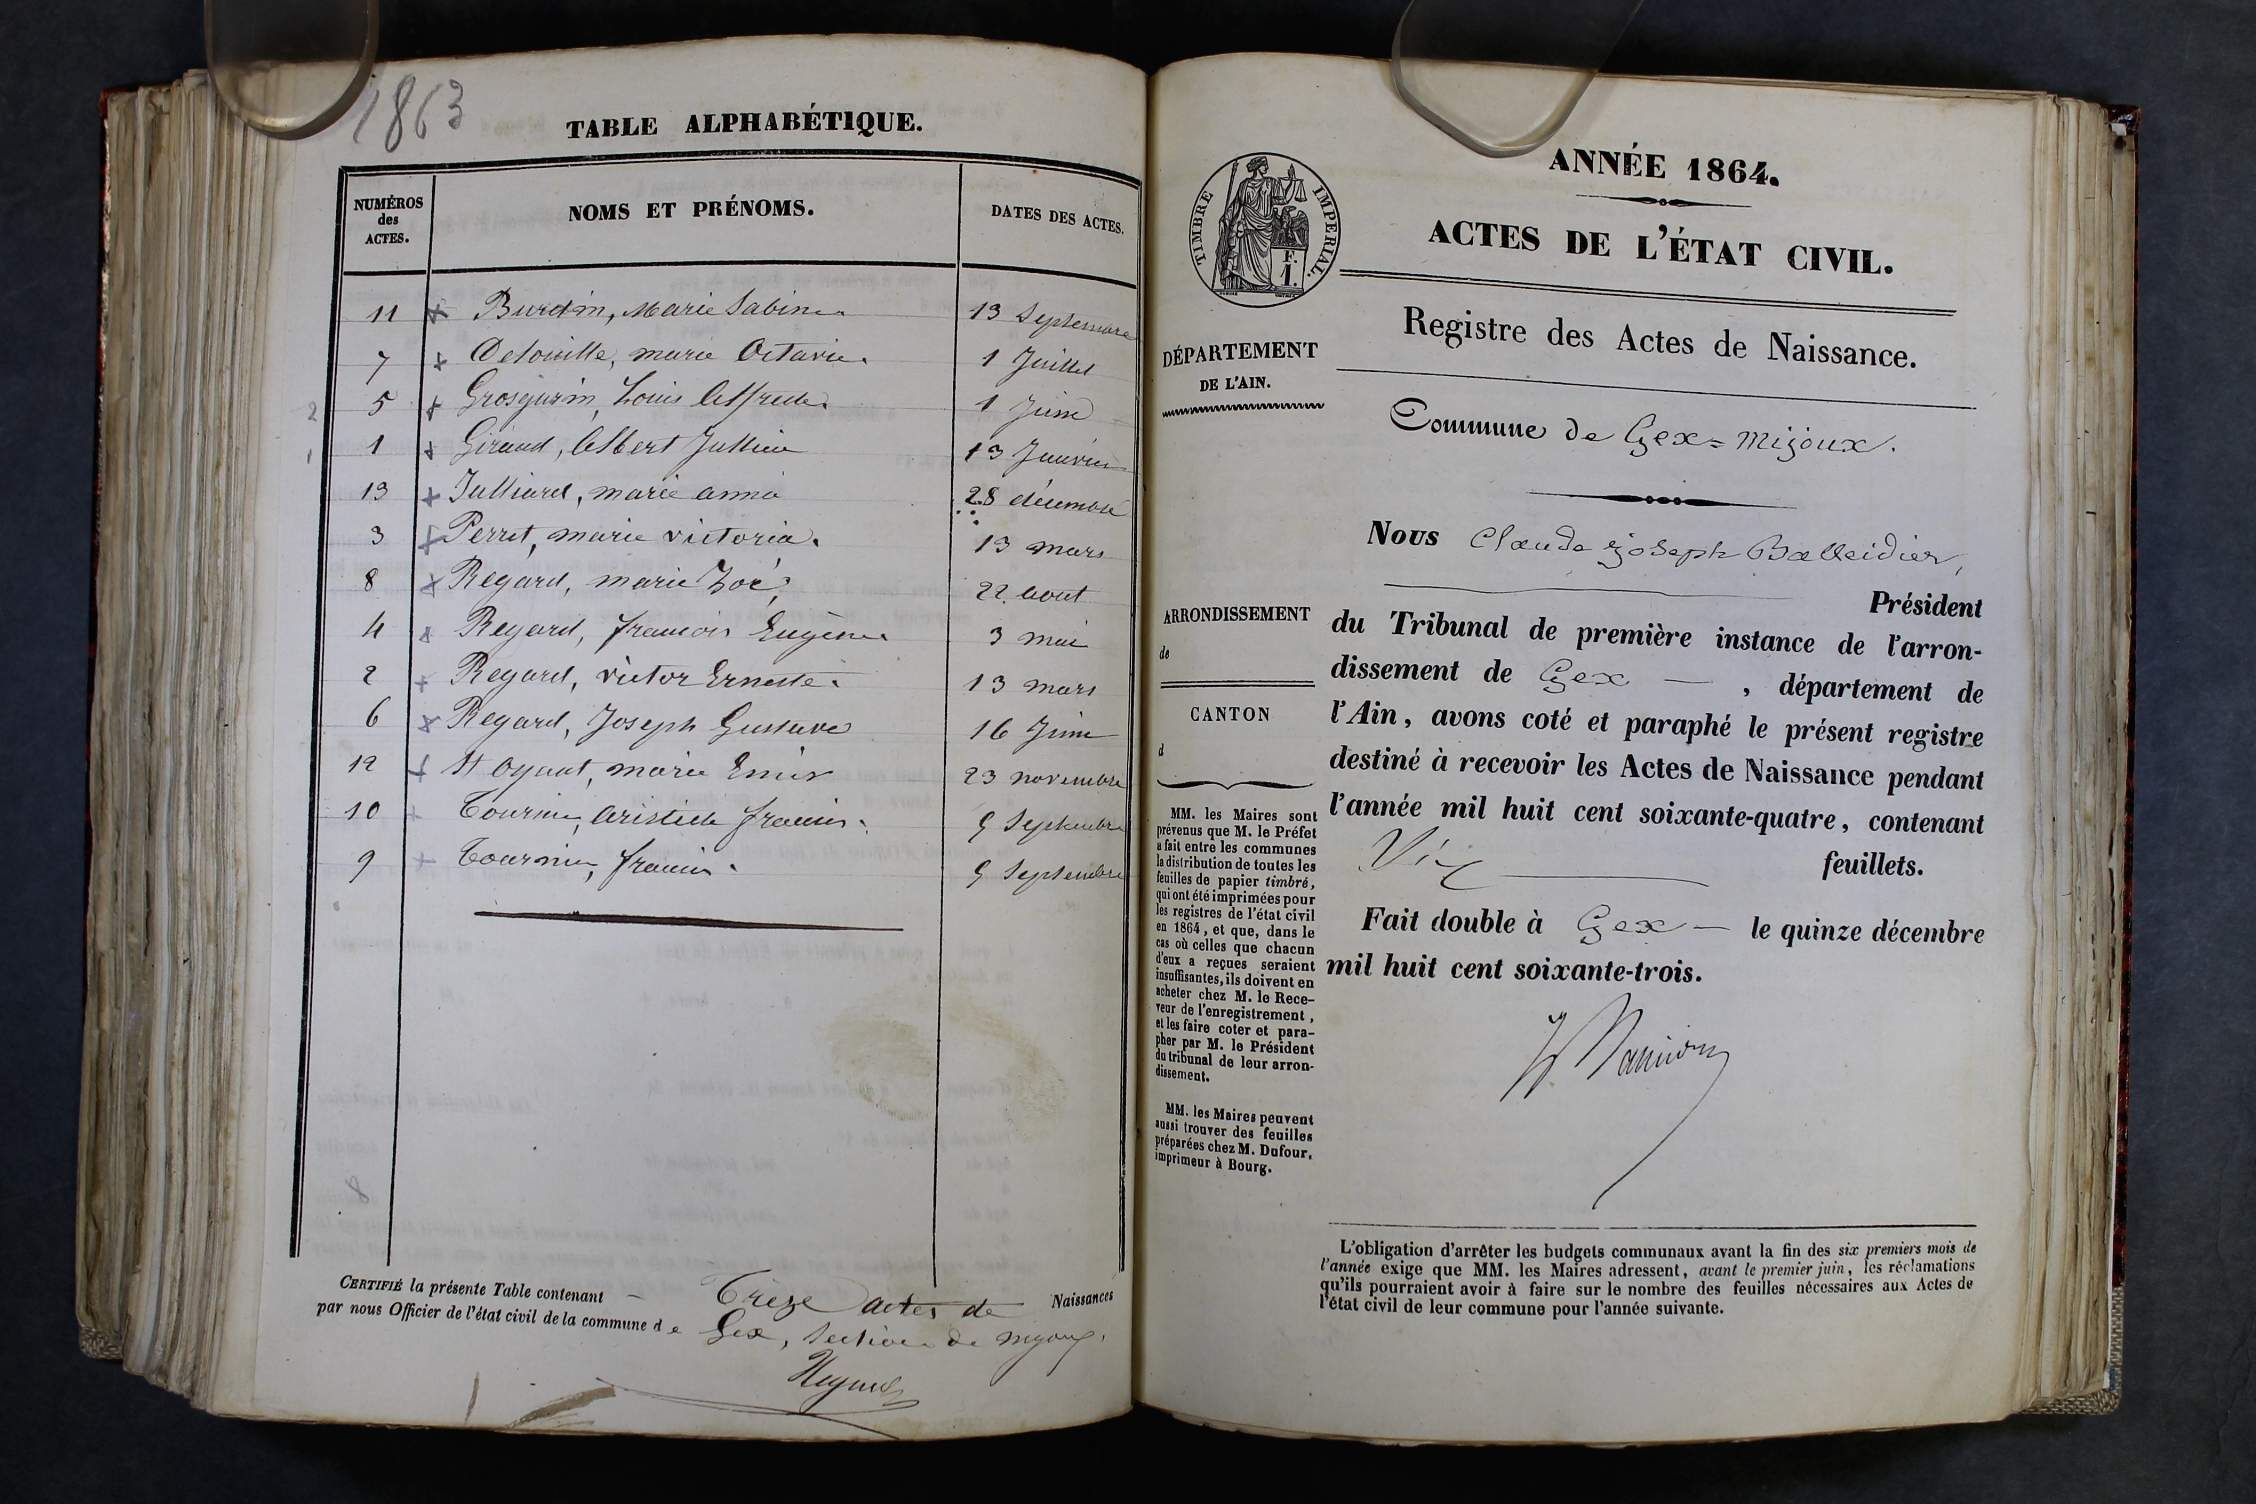 1863
TABLE ALPHABÉTIQUE.
NUMÉROS des ACTES. NOMS ET PRÉNOMS. DATES DES ACTES.
11 Burdin, Marie Sabine 13 Septembre
7 Delouille, marie Octavie. 1 Juillet
5 Grosgurin, Louis Alfred. 1 Juin
1 Giraud, Albert Jullien 13 Janvier
13 Julliard, marie anna 28 décembre
3 Perret, marie victoria. 13 mars
8 Regard, marie Zoé 22 aout
4 Regard, francois Eugène 3 mai
2 Regard, victor Erneste. 13 mars
6 Regard, Joseph Gustave 16 Juin
12 St Oyant, marie 23 novembre
10 Tournier, Aristide francis. 9 Septembre
9 Tournier, francis. 9 Septembre
8
CERTIFIÉ la présente Table contenant Trèze actes de Naissances
par nous Officier de l'état civil de la commune de Gex, Section de mijoux.
TIMBRE IMPERIAL.
F.
1.
ANNÉE 1864.
ACTES DE L'ÉTAT CIVIL.
Registre des Actes de Naissance.
DÉPARTEMENT
DE L'AIN.
Commune de Gex=Mijoux.
Nous Claude Joseph Balleidier,
Président
ARRONDISSEMENT
de
CANTON
d
du Tribunal de première instance de l'arron-
dissement de Gex — , département de
l'Ain, avons coté et paraphé le présent registre
destiné à recevoir les Actes de Naissance pendant
l'année mil huit cent soixante-quatre, contenant
feuillets.
Fait double à Gex — le quinze décembre
mil huit cent soixante-trois.
MM. les Maires sont
prévenus que M. le Préfet
a fait entre les communes
la distribution de toutes les
feuilles de papier timbré,
qui ont été imprimées pour
les registres de l'état civil
en 1864, et que, dans le
cas où celles que chacun
d'eux a reçues seraient
insuffisantes, ils doivent en
acheter chez M. le Rece-
veur de l'enregistrement,
et les faire coter et para-
pher par M. le Président
du tribunal de leur arron-
dissement.
MM. les Maires peuvent
aussi trouver des feuilles
préparées chez M. Dufour,
imprimeur à Bourg.
L'obligation d'arrêter les budgets communaux avant la fin des six premiers mois de
l'année exige que MM. les Maires adressent, avant le premier juin, les réclamations
qu'ils pourraient avoir à faire sur le nombre des feuilles nécessaires aux Actes de
l'état civil de leur commune pour l'année suivante.